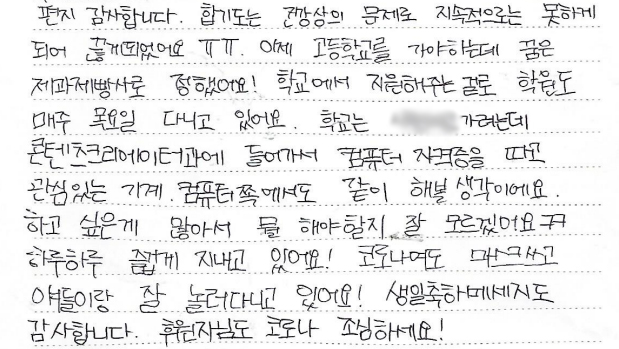 편지 감사합니다. 합기도는 건강상의 문제로 지속적으로는 못하게
되어 끊게되었어요 ㅠㅠ. 이제 고등학교를 가야하는데 꿈은
제과제빵사로 정했어요! 학교에서 지원해주는걸로 학원도
매주 목요일 다니고 있어요. 학교는 가려는데
콘텐츠크리에이터과에 들어가서 컴퓨터 자격증을 따고
관심있는 기계. 컴퓨터쪽에서도 같이 해볼 생각이에요.
하고 싶은게 많아서 뭘 해야할지 잘 모르겠어요ㅠㅠ
하루하루 즐겁게 지내고 있어요! 코로나여도 마스크쓰고
얘들이랑 잘 놀러다니고 있어요! 생일축하메세지도
감사합니다. 후원자님도 코로나 조심하세요!